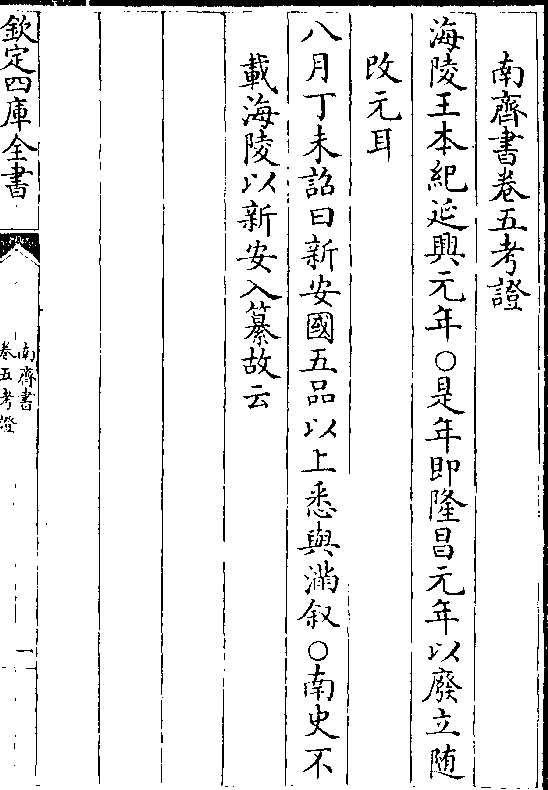 南齊書卷五考證
海陵王本紀延興元年○是年即隆昌元年以廢立随
改元耳
八月丁未詔曰新安國五品以上悉與滿叙○南史不
載海陵以新安入纂故云
欽定四庫全書
南齊書
卷五考證
一